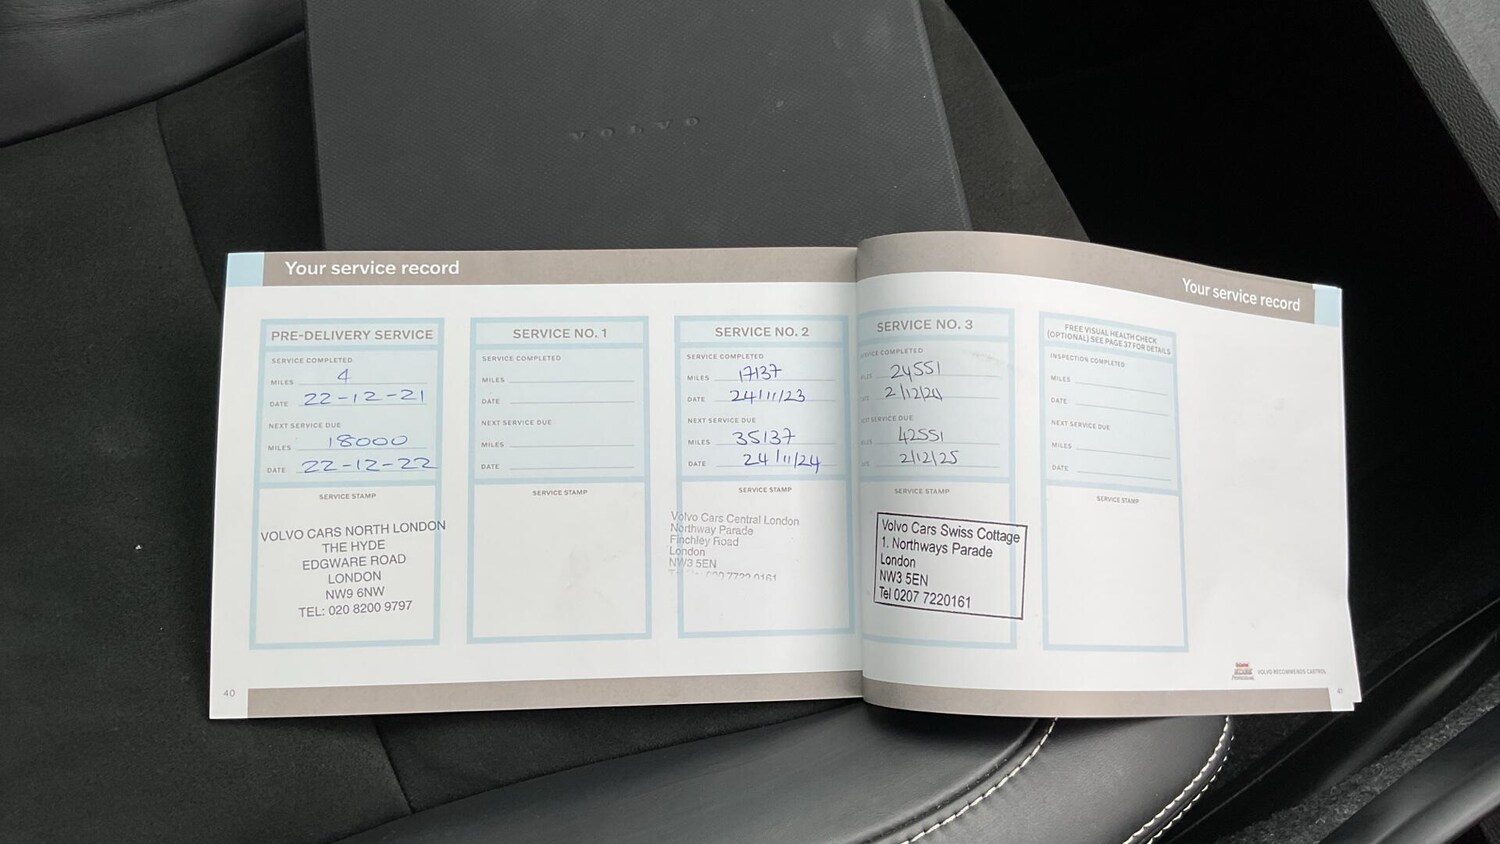 VOLVO
Your service record
PRE-DELIVERY SERVICE
SERVICE COMPLETED
MILES 4
DATE 22-12-21
NEXT SERVICE DUE
MILES 18000
DATE 22-12-22
SERVICE STAMP
VOLVO CARS NORTH LONDON
THE HYDE
EDGWARE ROAD
LONDON
NW9 6NW
TEL: 020 8200 9797
SERVICE NO. 1
SERVICE COMPLETED
MILES
DATE
NEXT SERVICE DUE
MILES
DATE
SERVICE STAMP
SERVICE NO. 2
SERVICE COMPLETED
MILES 17137
DATE 24/11/23
NEXT SERVICE DUE
MILES 35137
DATE 24/11/24
SERVICE STAMP
Volvo Cars Central London
Northway Parade
Finchley Road
London
NW3 5EN
020 7722 0161
40
Your service record
SERVICE NO. 3
SERVICE COMPLETED
MILES 24551
2/12/24
NEXT SERVICE DUE
MILES 42551
2/12/25
SERVICE STAMP
Volvo Cars Swiss Cottage
1. Northways Parade
London
NW3 5EN
Tel 0207 7220161
FREE VISUAL HEALTH CHECK
(OPTIONAL) SEE PAGE 37 FOR DETAILS
INSPECTION COMPLETED
MILES
DATE
NEXT SERVICE DUE
MILES
DATE
SERVICE STAMP
VOLVO RECOMMENDS CASTROL
41